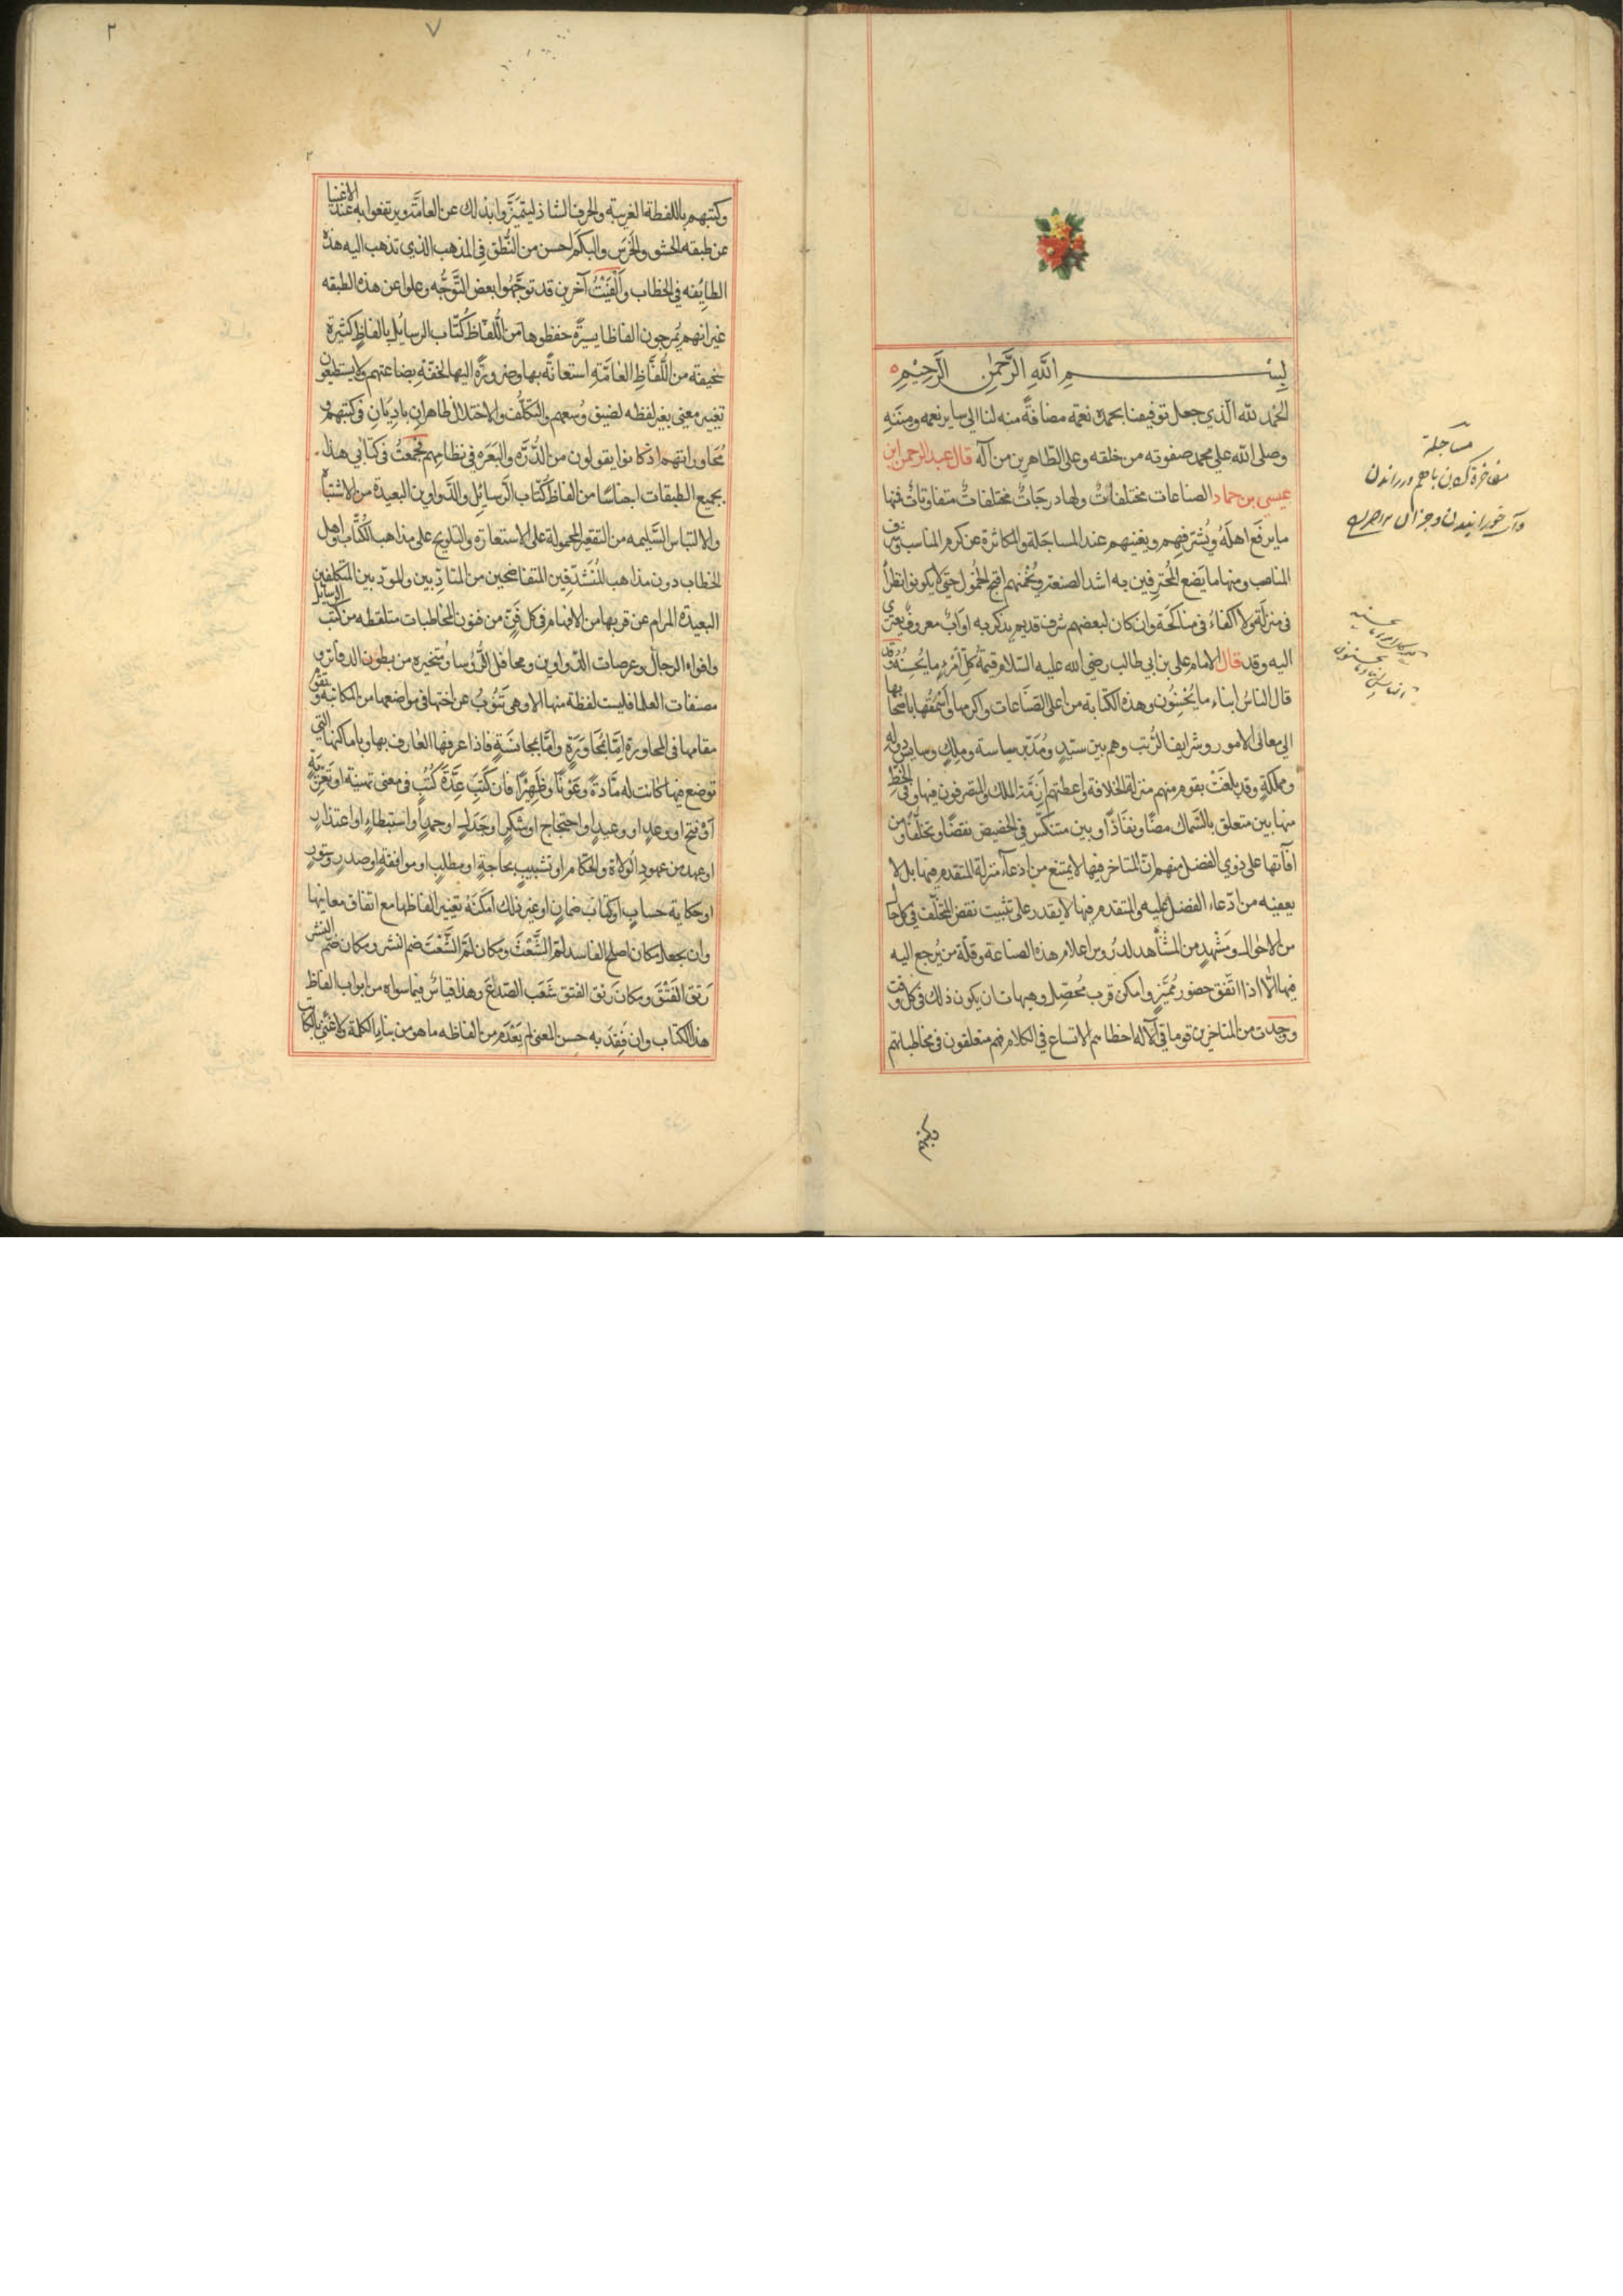 بسم الله الرحمن الرحيم
الحمد لله الذي جعل توفيقنا بحمده نعمة مضافةً منه لنا الي ساير نعمه ومننه
وصلى الله علي محمد صفوته من خلقه وعلى الطاهرين من آله قال عبد الرحمن ابن
عيسى بن حماد الصناعات مختلفاتٌ ولها درجاتٌ مختلفاتٌ متفاوتاتٌ فمنها
ما يرفع اهله ويُشرّفهم ويغنيهم عند المساجَلة والمكاثرة عن كرم المناسب وشرف
المناصب ومنها ما يَضع المُحترفين به اشد الضعة ويُخملهم اقبح الخمُول حتى لا يكونوا نظراً
فى منزلة ولا اكفاءً فى مناكحَة وان كان لبعضهم شرف قديم يذكر به او ابٌ معروفٌ يعتزى
اليه وقد قال الامام على بن ابي طالب رضي الله عليه السّلام قيمةُ كلّ امرءٍ ما يُحسِنُهُ وقد
قال الناسُ ابناء ما يُحْسِنُون وهذه الكتابة من اعلى الصّناعات واكرمها واَسْمَقُها باصحابها
الي معالى الامور وشرايف الرُّتب وهم بين سيّدٍ ومُدَبّر سياسة وملِكٍ وسايس دولةٍ
ومملكةٍ وقد بلغَتْ بقوم منهم منزلة الخلافة واعطتهم اَزِمّة الملك والمتصرفون فيها وفى الحظِ
منها بين متعلق بالسّماك مضّا ونفاذاً وبين متنكّس في الحضيض نقصًا وتخلّفًا ومن
افآتها على ذوي الفضل منهم انّ المتاخر فيها لا يمتنع من ادعآء منزلة المتقدم فيها بل لا
يعفيه من ادّعاء الفضل عليه والمتقدم فيها لا يقدر على تثبيت نقص المتخلّف في كل حال
من الاحوال ومَشْهدٍ من المشَاهد لدُرُوس اعلام هذه الصناعة وقلّة من يُرجع اليه
فيها الّا اذا اتّفق حضور مُميّزٍ وامكن قرب مُحصِّل وهيهات ان يكون ذلك فى كل وقت
ووجدت من المتاخرين قوما الآلة احظاهم الاتساع في الكلام فهم متعلقون فى مخاطباتهم
مساجلة
٧
٢
وكتبهم باللفظة الغريبة والحرف الشاذ ليتميّزَوا بذلك عن العامّة ويرتفعوا به عند الاغنيا
عن طبقه الحشو والخَرَس والبكم احسن من النُّطق في المذهب الذي تذهب اليه هذه
الطايفه في الخطاب واَلْفَيْتُ آخرين قد توجّهُوا بعض التَّوَجُّه وعلوا عن هذه الطبقه
غير انهم يُمرجون الفاظا يسيرةً حفظوها من الفاظ كُتّاب الرسايُل بالفاظٍ كثيرة
سخيفة من الفاظِ العامّةِ استعانةً بها وضرورةً اليها لخفّةِ بضاعتهم ولا يستطيعون
تغيير معنى بغير لفظه لضيق وُسعهم والتكلّف والاختلال ظاهرانِ باديَانِ فى كتبهم و
مُحاوراتهم اذ كانوا يقولون من الدُّرّه والبَعَره في نظامهم فجمعتُ فى كتابي هذا
بجميع الطبقات اجناسًا من الفاظ كُتّاب الرّسايُل والدَّواوين البعيدة من الاشتباه
والالتباس السّليمه من التقعير المحمولة على الاستعارة والتلويح على مذاهب الكُتّاب واهل
الخطاب دون مذاهب المُتشدّقين المتفاصحين من المتادّبين والمودّبين المتكلفين
البعيدة المرام عن قربها من الافهام فى كل فَنّ من فنون المخاطبات متلقطه من كتب الرسايل
وافواه الرجال وعرصات الدواوين ومحافل الرُّؤسا ومُتخيره من بطون الدفاتر و
مصنفات العلما فليست لفظة منها الا وهى تَنُوبُ عن اختها فى مواضعها من المكاتبة وتقُوم
مقامها فى المحاورة امّا بمُجَاوَرَةٍ وامّا بمجانسَةٍ فاذا عرفها العارف بها وباماكنها التي
توضع فيها كانت له مَادّةً وعَوْنًا وظَهِيْرًا فان كَتَبَ عِدّةَ كُتُبٍ فى معنى تهنيَة او تعزيَةٍ
اَو فتح او وعدٍ او وعيدٍ او احتجاج او شكرٍ او جَدَلٍ او حمدٍ او استبطاءٍ او اعتذارٍ
او عهد من عهود الوُلاة والحكام او تشبيبٍ بحاجةٍ او مطلبٍ او موافقةٍ او صدر
او حكاية حسابٍ او كتاب ضمانٍ او غير ذلك امكَنهُ تغيير الفاظها مع اتفاق معانيها
وان يجعل مكان اصلح الفاسد لمّ الشَّعْثَ ومكان لمّ الشَّعْثَ ضم النشر ومكان ضم النشر
رَتقَ الفَتْقَ ومكان رَتق الفتق شَعَب الصّدعَ وهذا قياسٌ فيما سواه من ابواب الفاظِ
هذا الكتاب وان فُقِدَ به حسن المعنى لم يَعْدَم من الفاظه ما هو من بناية الكلمة ولا غنًى بالكاتب